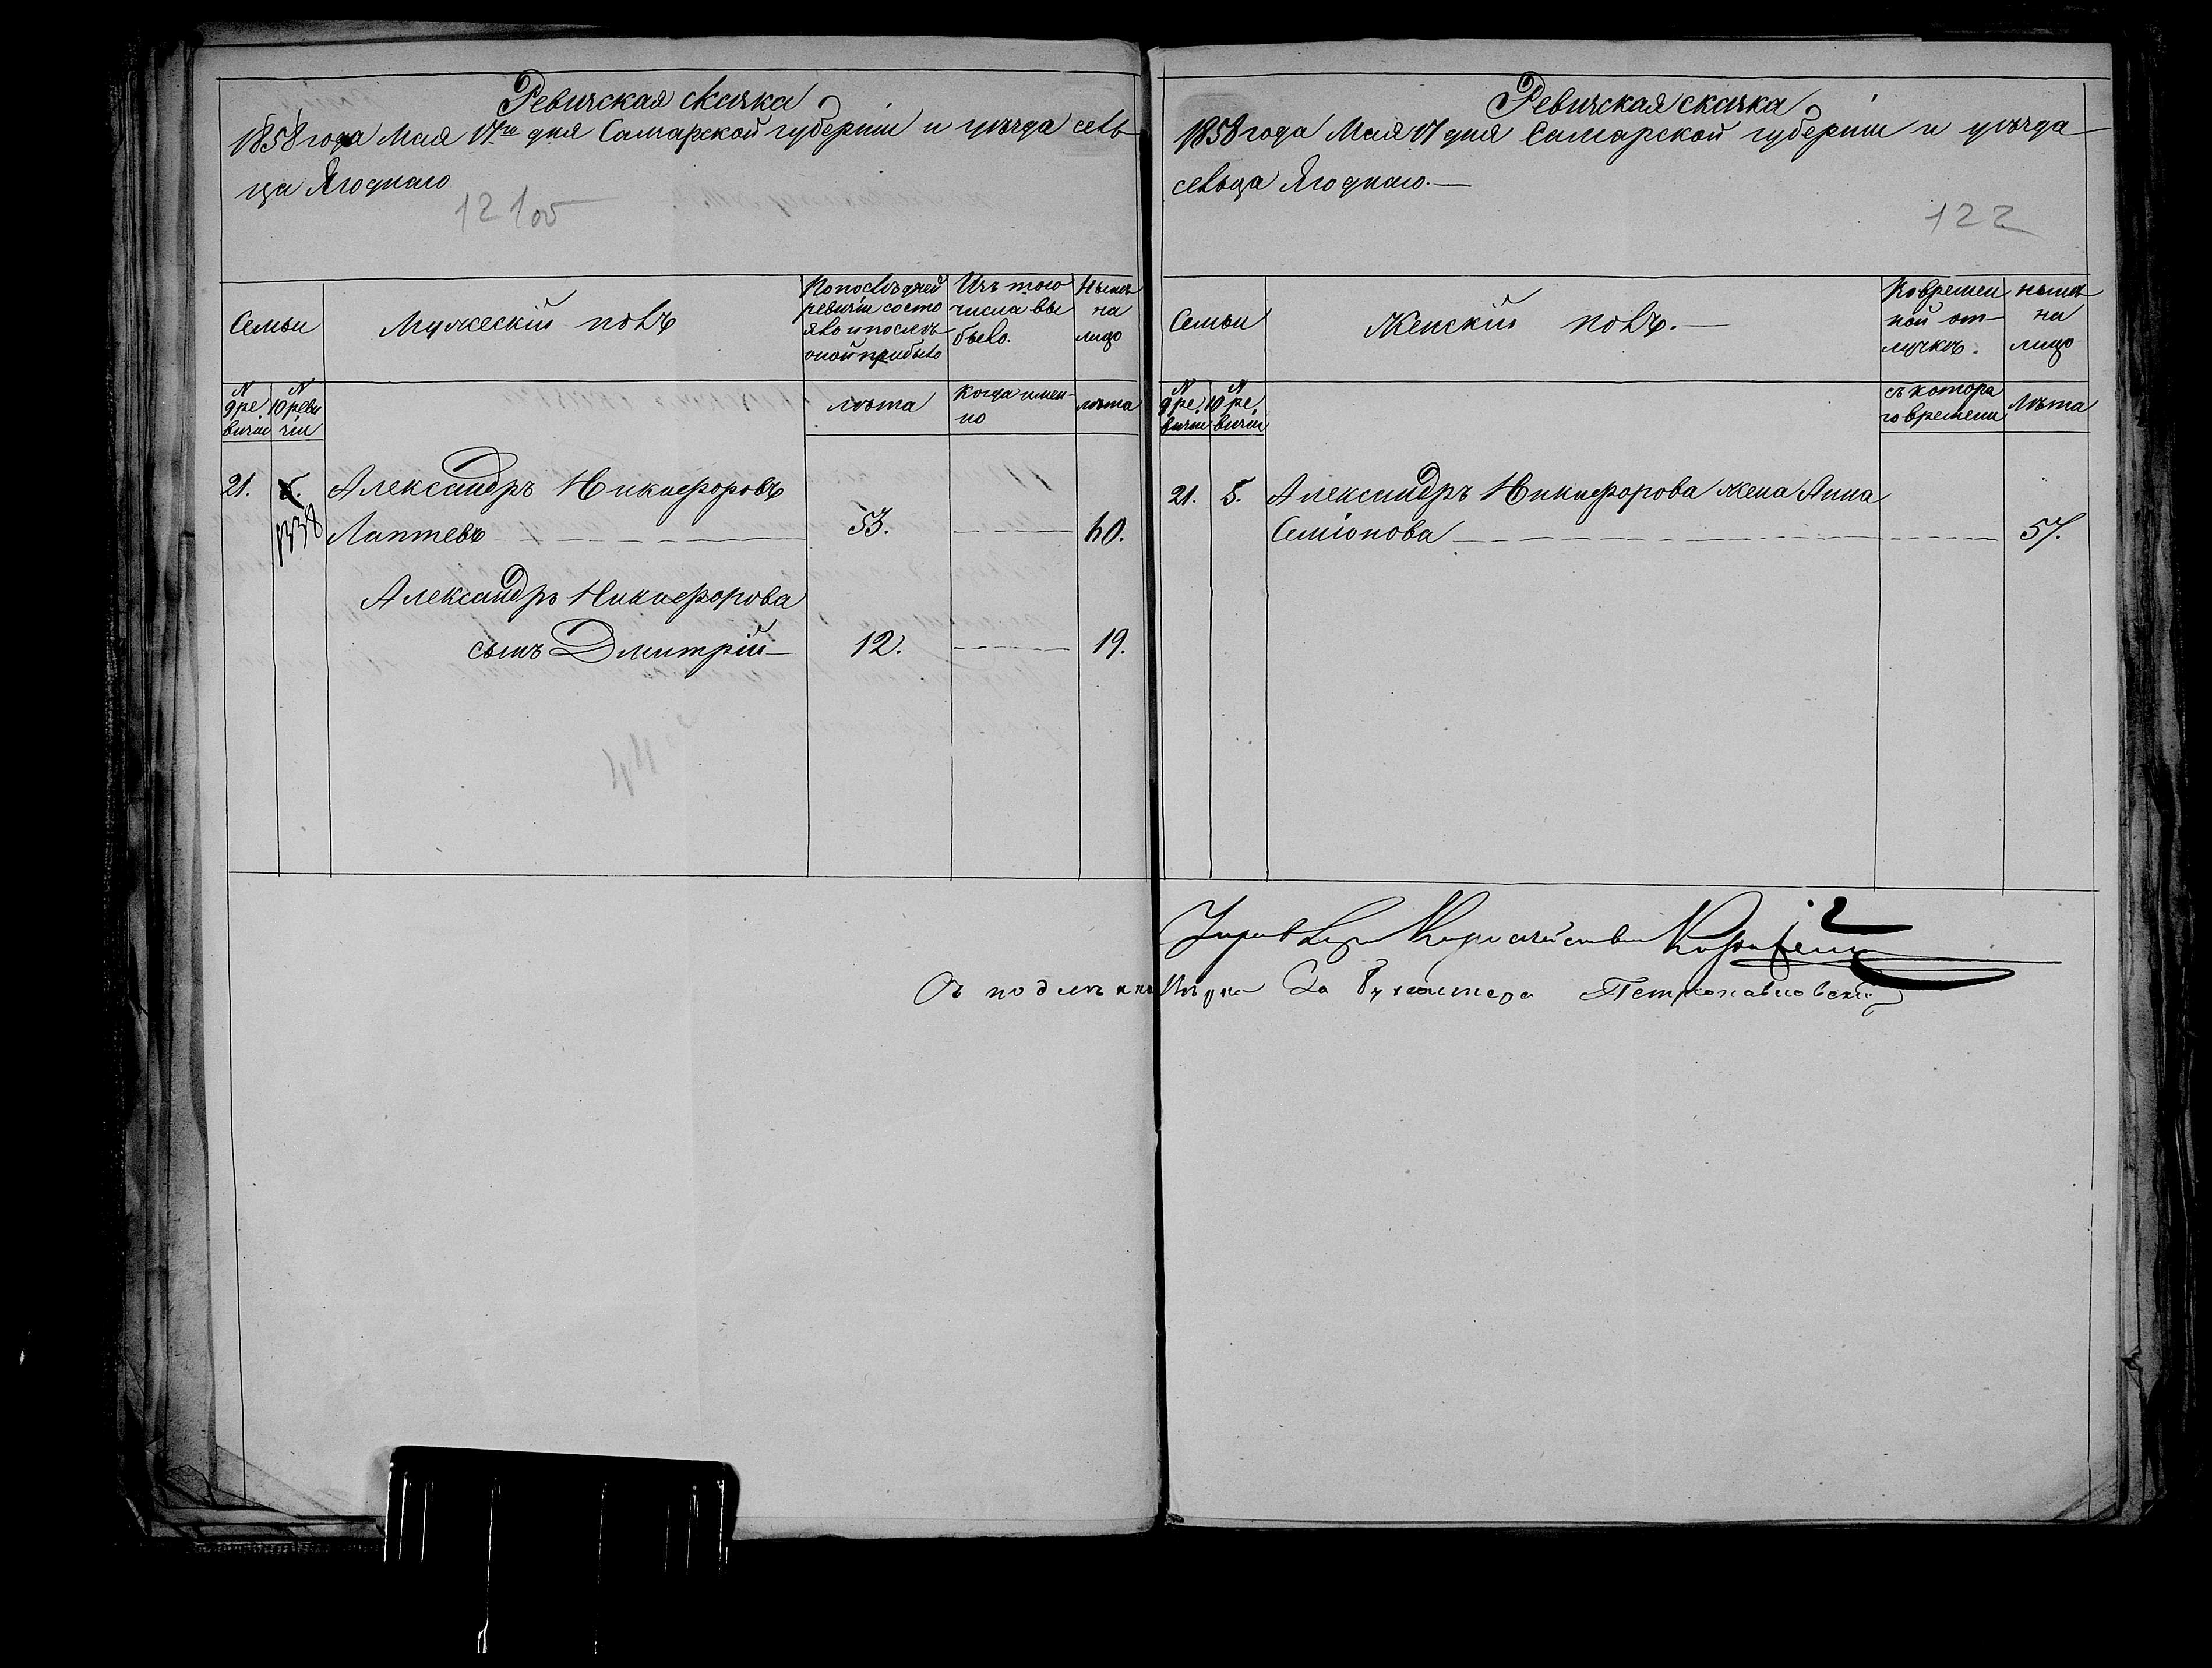 Ревизская сказка
1858 года Мая 17го дня Самарской губерніи и уѣзда сель
ца Ягоднаго
121 об
Семьи
Мужескій полъ
По послѣдней
ревизіи состо
яло и послѣ
оной прибыло
Изъ того
числа вы
было.
Нынѣ
на
лицо
N
9 ре
визіи
N
10 реви
зіи
лѣта
Когда имен-
но
лѣта
21. 5. Александръ Никифоровъ
Лаптевъ 53. 60.
Александръ Никифорова
сынъ Дмитрій 12. 19.
Ревизская сказка
1858 года Мая 17 дня Самарской губерніи и уѣзда
сельца Ягоднаго.
122
Семьи
Женскій полъ.
Во времен
ной от-
лучкѣ.
нынѣ
на
лицо
N
9 ре
визіи
N
10 ре
визіи
съ котора
го времени
Лѣта
21. 5. Александръ Никифорова жена Анна
Семіонова 57.
За Бухгалтера Петропавловскій